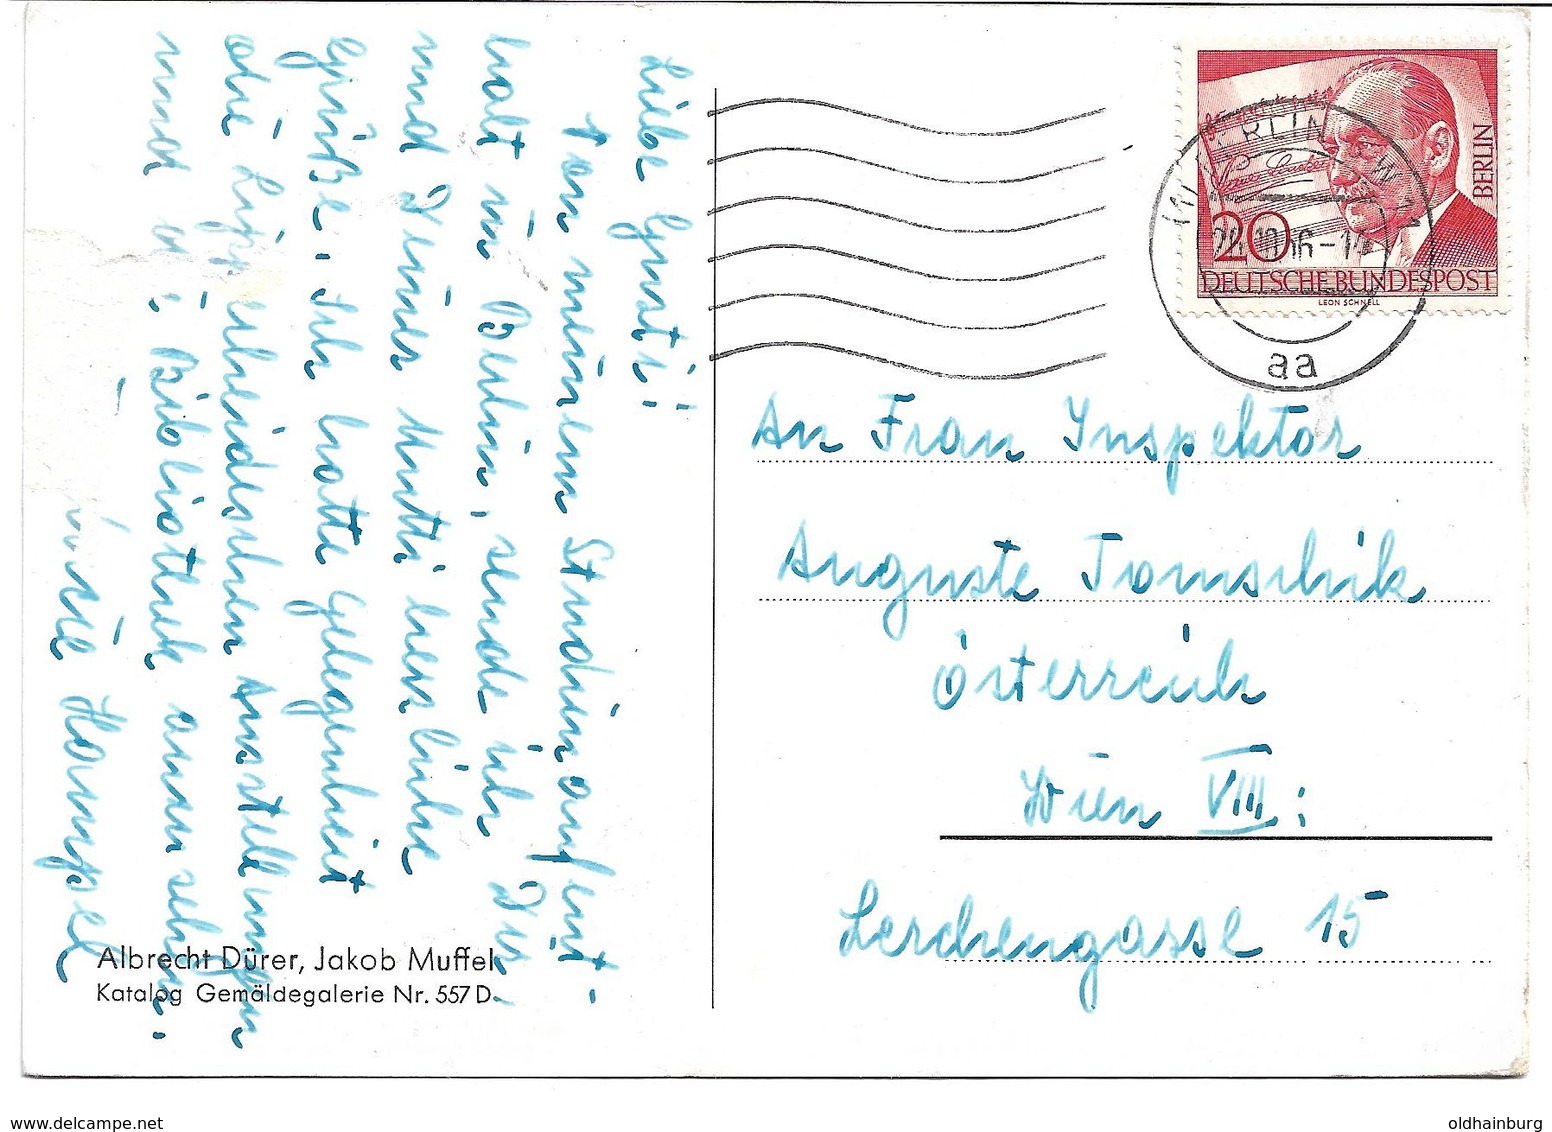 Liebe Gusti!
Von meinem Studienaufent-
halt in Berlin, sende ich Dir,
und Deiner Mutti herzliche
Grüße. Ich hatte Gelegenheit
die hiesigen Ausstellungen
und a. Bibliothek anzusehen.
Hampel
Albrecht Dürer, Jakob Muffel
Katalog Gemäldegalerie Nr. 557 D.
BERLIN
20
DEUTSCHE BUNDESPOST
LEON SCHNELL
BERLIN W
56-1
aa
An Frau Inspektor
Auguste Tomschik
Österreich
Wien VIII:
Lerchengasse 15
www.delcampe.net
oldhainburg